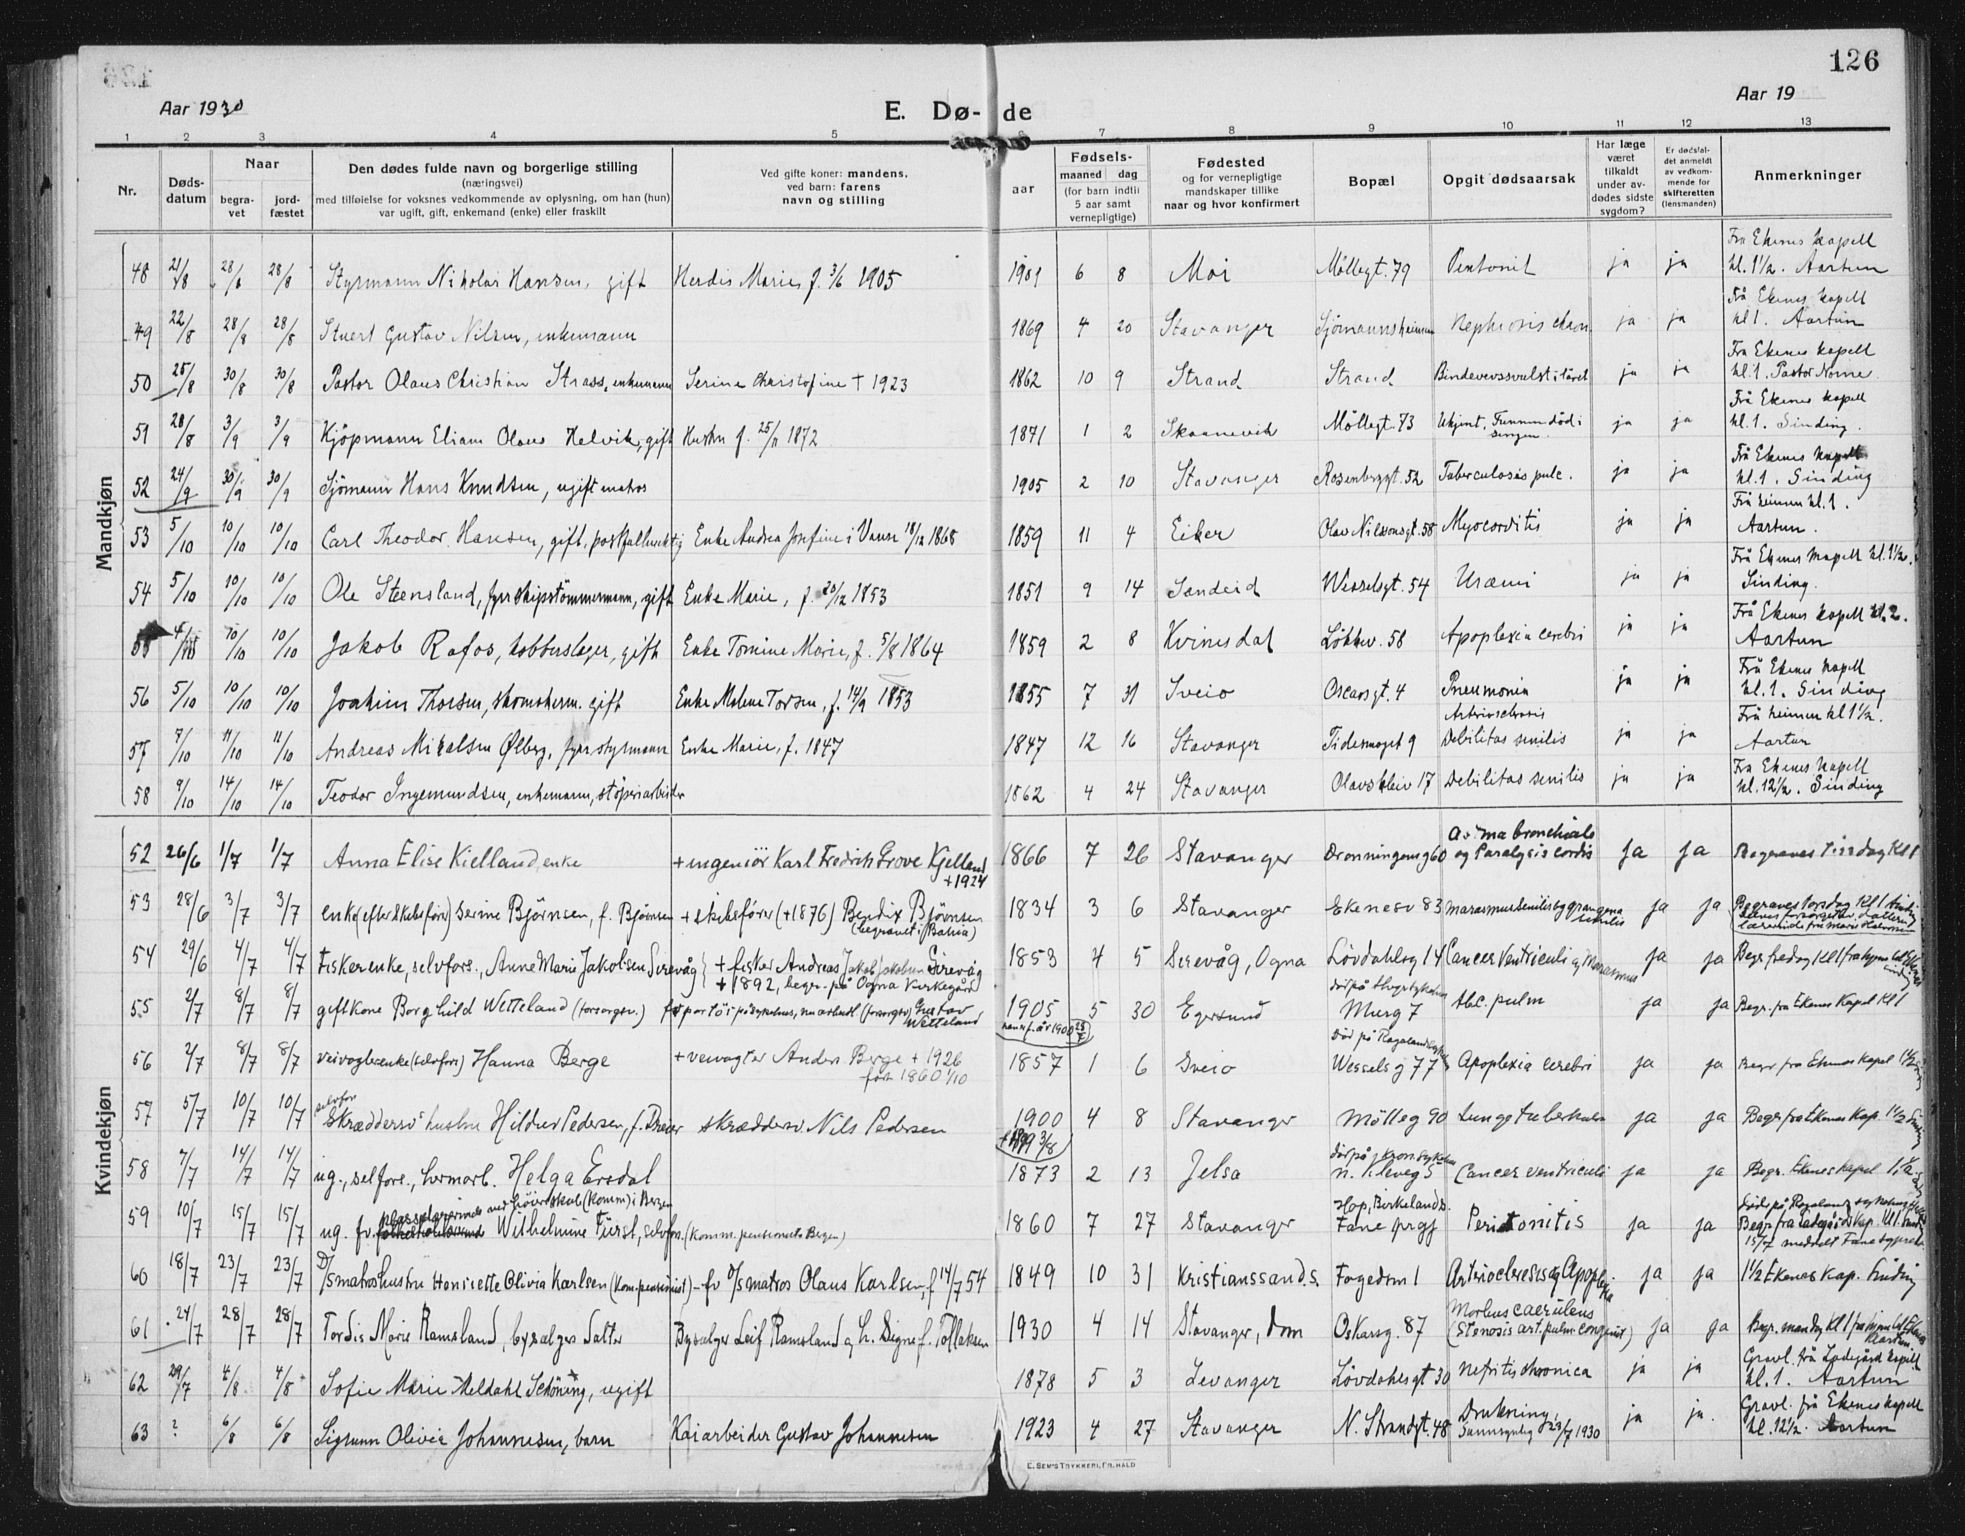 126
Aar 1930
E. Dø- de
Aar 19
1 2 3 4 5 6 7 8 9 10 11 12 13
Nr.
Døds-
datum
Naar
begra-
vet
jord-
fæstet
Den dødes fulde navn og borgerlige stilling
(næringsvei)
med tilføielse for voksnes vedkommende av oplysning, om han (hun)
var ugift, gift, enkemand (enke) eller fraskilt
Ved gifte koner: mandens,
ved barn: farens
navn og stilling
aar
Fødsels-
maaned dag
(for barn indtil
5 aar samt
vernepligtige)
Fødested
og for vernepligtige
mandskaper tillike
naar og hvor konfirmert
Bopæl
Opgit dødsaarsak
Har læge
været
tilkaldt
under av-
dødes sidste
sygdom?
Er dødsfal-
det anmeldt
av vedkom-
mende for
skifteretten
(lensmanden)
Anmerkninger
Mandkjøn
Fra Ekenes kapell
48 21/8 28/8 28/8 Styrmann Nikolai Hansen, gift Herdis Marie, f. 3/6 1905 1901 6 8 Moi Møllegt. 79 ja ja kl. 1½. Aartun
Frå Ekenes kapell
49 22/8 28/8 28/8 Stuert Gustav Nilsen, enkemann 1869 4 20 Stavanger Sjømannsheimen ja ja kl 1. Aartun
Fra Ekenes kapell
50 25/8 30/8 30/8 Pastor Olaus Christian Strass, enkemann Serine Christofine † 1923 1862 10 9 Strand Strand ja ja kl. 1. Pastor Norne
Frå Ekenes kapell
51 28/8 3/9 3/9 Kjøpmann Eliam Olaus Helvik, gift Hustru f. 25/11 1872 1871 1 2 Skaanevik Møllegt. 73 Ukjent, Funnen död i
sengen. ja ja kl. 1. Sinding.
Frå Ekenes kapell
52 24/9 30/9 30/9 Sjömann Hans Knudsen, ugift matros 1905 2 10 Stavanger Rosenbergt. 52 Tuberculosis pulc. ja ja kl. 1. Sinding
Frå heimen kl. 1.
53 5/10 10/10 10/10 Carl Theodor Hansen, gift, Enke Andrea Josefine i Vanse 18/12 1868 1859 11 4 Eiker Olav Nilssonsgt. 58 Myocorditis ja ja Aartun.
Frå Ekenes kapell kl. 1½.
54 5/10 10/10 10/10 Ole Steensland, fyrr skipstömmermann, gift Enke Marie, f. 20/12 1853 1851 9 14 Sandeid Wesselsgt. 54 Uræmi ja ja Sinding.
Frå Ekenes kapell kl. 2.
55 4/10 10/10 10/10 Jakob Rafos, kobberslager, gift Enke Tomine Marie, f. 5/8 1864 1859 2 8 Kvinesdal Løkkev. 58 Apoplexia cerebri ja ja Aartun
Frå Ekenes kapell
56 5/10 10/10 10/10 Joakim Thorsen, skomakerm. gift Enke Malene Torsen, f. 14/9 1853 1855 7 31 Sveio Oscarsgt. 4 Pneumonia ja ja kl. 1. Sinding
Arteriosclerosis Frå heimen kl 1½.
57 7/10 11/10 11/10 Andreas Mikalsen Ølberg, fyrr styrmann Enke Marie, f. 1847 1847 12 16 Stavanger Tidemansgt 9 Debilitas senilis ja ja Aartun
Fra Ekenes kapell
58 9/10 14/10 14/10 Teodor Ingemundsen, enkemann, støperiarbeider 1862 4 24 Stavanger Olavskleiv 17 Debilitas senilis ja ja kl. 12½. Sinding
Kvindekjøn
Astma bronchiale
52 26/6 1/7 1/7 Anna Elise Kielland, enke + ingeniör Karl Fredrik Grove Kjelland
+ 1924 1866 7 26 Stavanger Dronningensg 60 og Paralysis cordis ja ja Begraves tirsdag Kl 1
53 28/6 3/7 3/7 enke (efter skibsfører) Serine Bjørnsen, f. Bjørnsen + skibsfører (+ 1876) Bendix Bjørnsen
(begravet i Bahia) 1834 3 6 Stavanger Ekenesv 83 marasmus senilis og gangrena
senilis ja ja Begraves torsdag Kl 1
54 29/6 4/7 4/7 Fiskerenke, selvfors., Anne Marie Jakobsen Sirevåg + fisker Andreas Jakob Jakobsen Sirevåg
+ 1892, begr. på Ogna Kirkegård 1853 4 5 Sirevåg, Ogna Lövdahlsg 14 Cancer ventriculi og Marasmus ja ja
55 2/7 8/7 8/7 gift kone Borghild Wetteland (forsorgsv.) Gustav
Wetteland 1905 5 30 Egersund Murg 7 tbc. pulm ja ja Begr. fra Ekenes Kapel Kl 1
död på Rogaland
56 2/7 8/7 8/7 veivogterenke (selvfors) Hanna Berge + veivogter Anders Berge + 1926
født 1860 1/10 1857 1 6 Sveio Wesselsg 77 Apoplexia cerebri ja ja Begr fra Ekenes Kapel 1½
selvfor
57 5/7 10/7 10/7 Skræddersv hustru Hildur Pedersen, f. Dreier skræddersv Nils Pedersen 1900 4 8 Stavanger Mölleg 90 Lungetuberkulose ja ja Begr. fra Ekenes Kap. 1½
58 7/7 14/7 14/7 ug., selfors., Helga Ersdal 1873 2 13 Jelsa Cancer ventriculi ja ja Begr. Ekenes kapel 1½
Hop, Birkelands.
59 10/7 15/7 15/7 ug. fv. Wilhelmine Fürst, selvfors. (Komm. pensionist Bergen) 1860 7 27 Stavanger Fane prgj Peritonitis ja ja
60 18/7 23/7 23/7 D/S matroshustru Henriette Olivia Karlsen (Kom. pensionist) - fv D/S matros Olaus Karlsen, f 14/7 54 1849 10 31 Kristianssand. S. Fogedsm 1 ja ja 1½ Ekenes Kap. Sinding
Morbus caeruleus
61 24/7 28/7 28/7 Tordis Marie Ramsland, bysælgers datter Bysælger Leif Ramsland og h. Signe f. Tollaksen 1930 4 14 Stavanger, dom Oskarsg. 87 (Stenosis art. pulm. congenit) ja ja
Aartun
Gravl. frå Ladegård kapell
62 29/7 4/8 4/8 Sofie Marie Meldahl Schöning, ugift 1878 5 3 Levanger Lövdahlsgt 30 Nefritis chronica ja ja kl. 1. Aartun
Drukning, Gravl. frå Ekenes kapell
63 ? 6/8 6/8 Sigrunn Olivie Johannesen, barn Kaiarbeider Gustav Johannesen 1923 4 27 Stavanger N. Strandgt. 48 Sannsynlig d 23/7 1930 ja ja. kl. 12½. Aartun
E. SEM'S TRYKKERI, FR. HALD